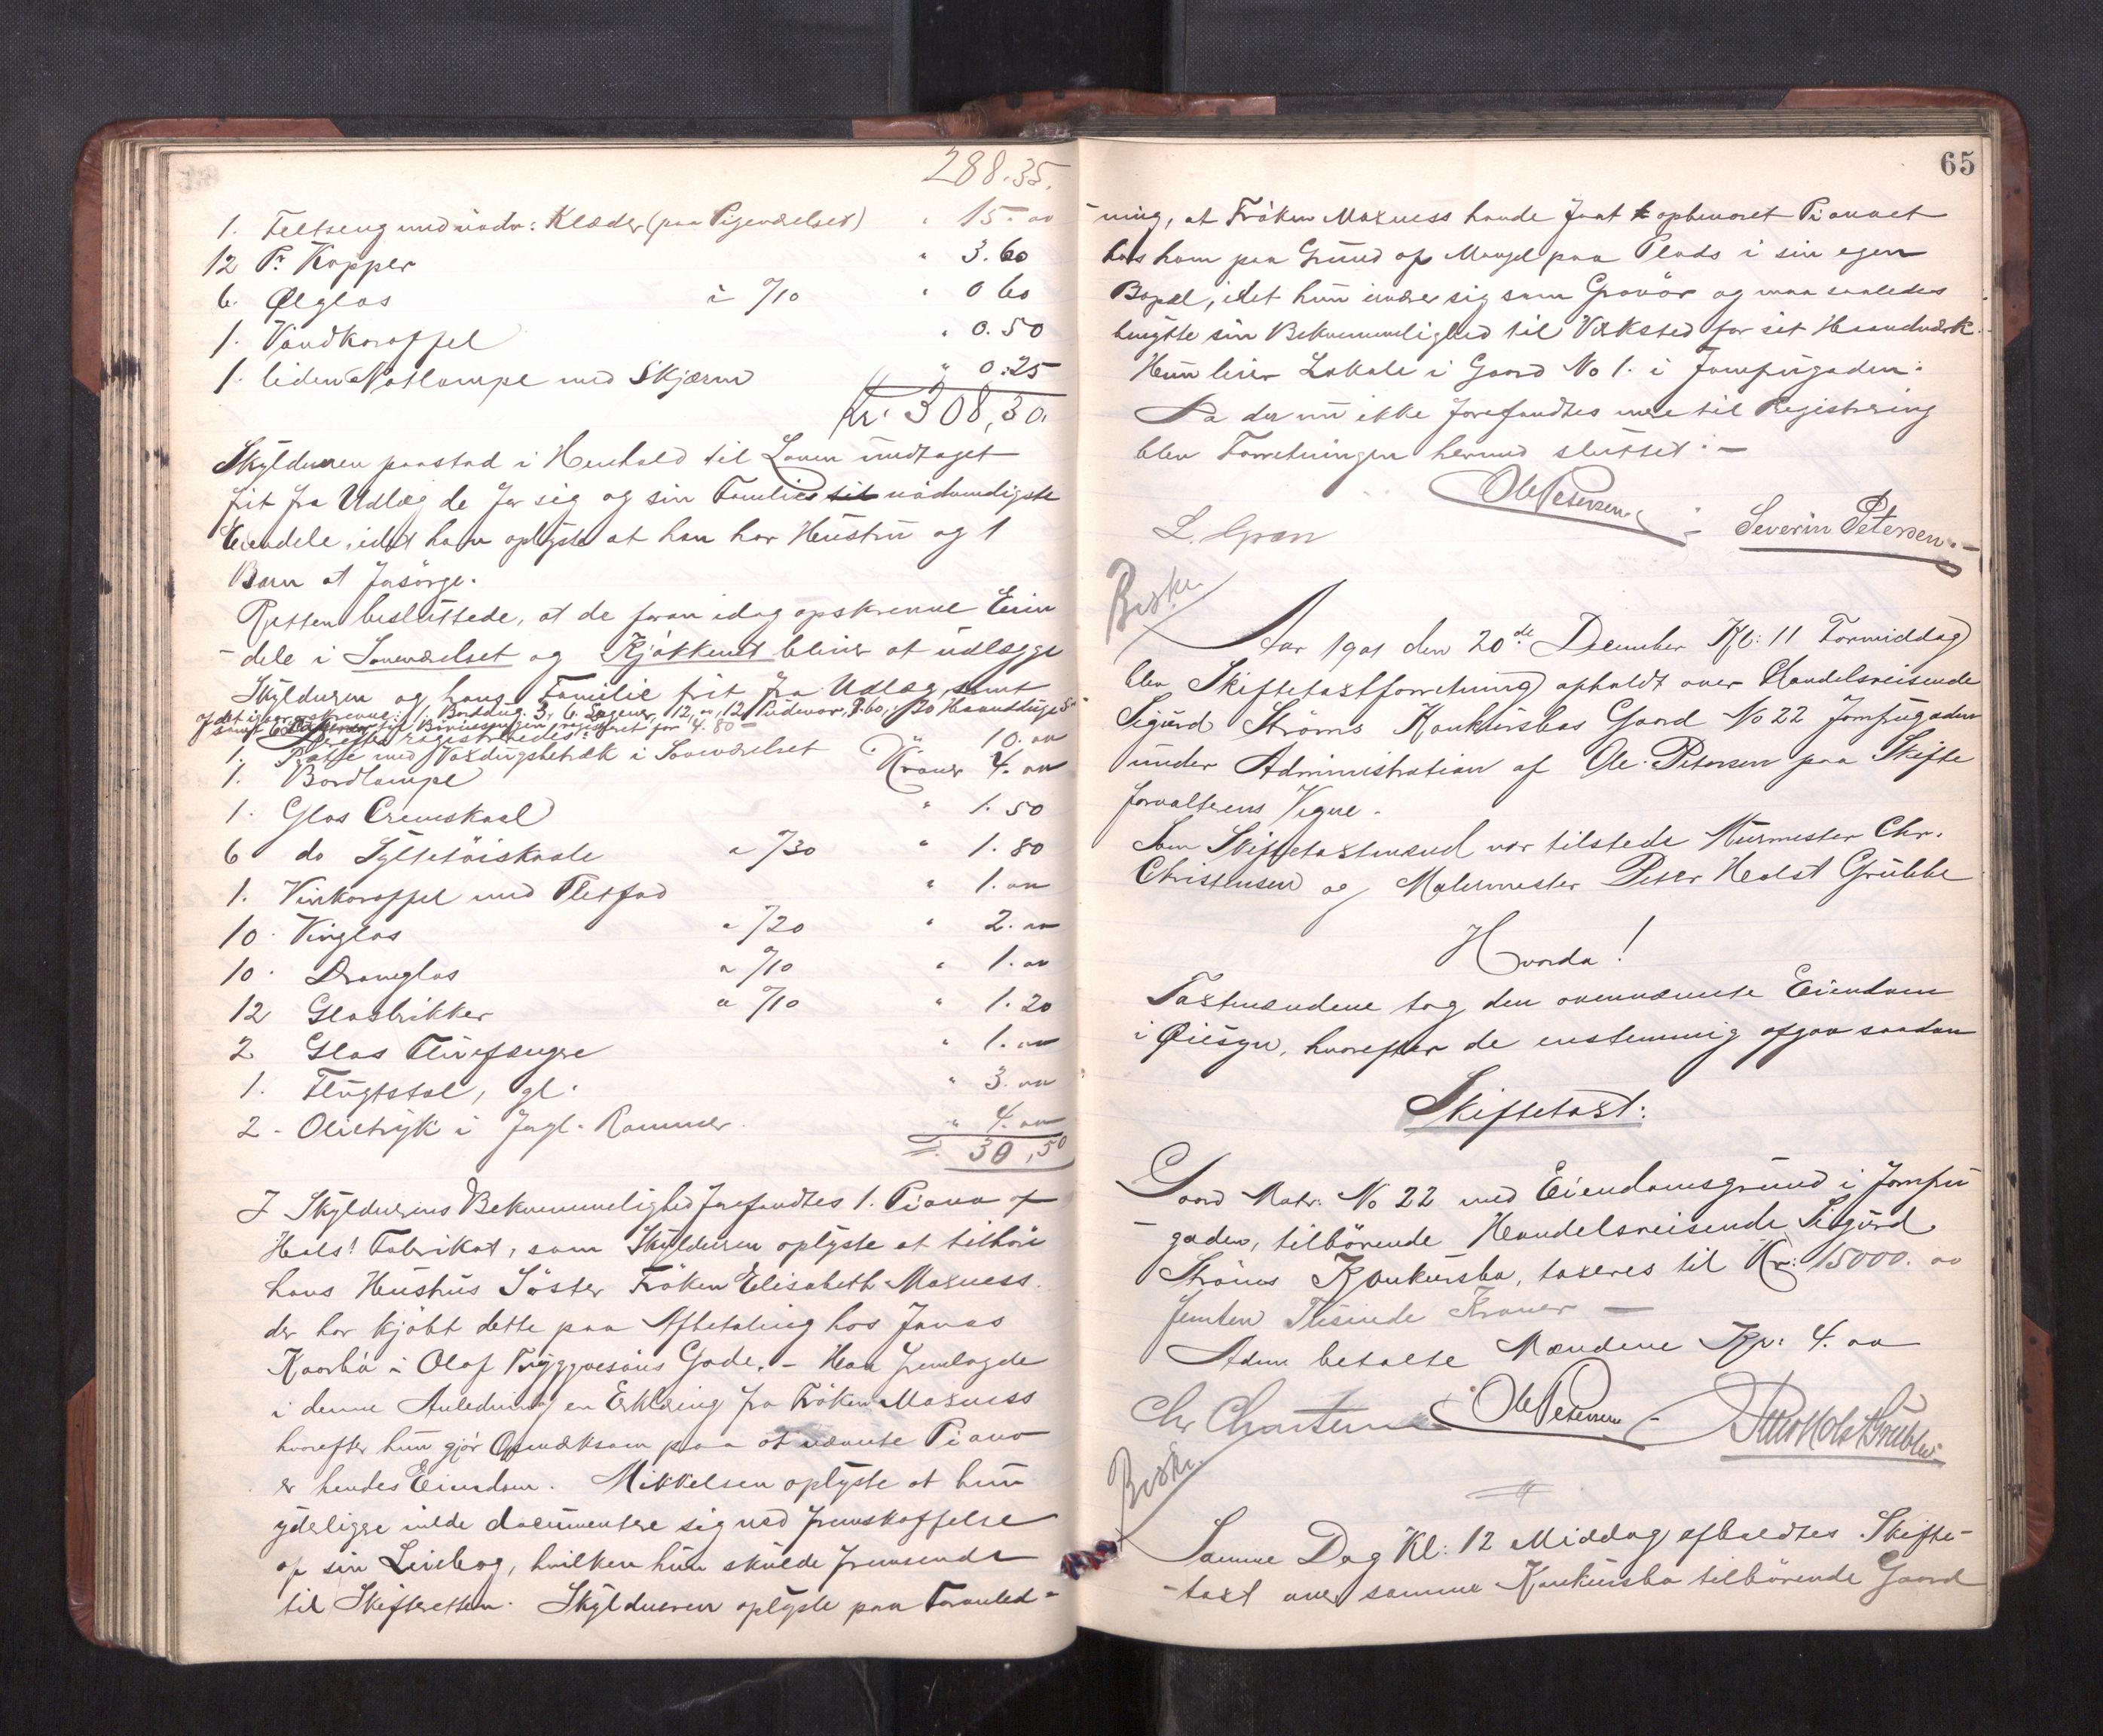 288.35.
1. Feltseng med nødv: Klæder (paa Pigeværelset) " 15.00
12 Pr Kopper " 3.60
6. Ølglas à %10 " 0 60
1. Vandkaraffel " 0.50
1. liden Natlampe med Skjærm " 0.25
Kr: 308,30.
Skyldneren paastod i Henhold til Loven undtaget
frit fra Udlæg de for sig og sin Familie nødvendigste
Eiendele, idet han oplyste at han har Hustru og 1
Barn at forsørge.
Retten besluttede, at de foran idag opskrevne Eien
-dele i Soveværelset og Kjøkkenet bliver at udlægge
Skyldneren og hans Familie frit fra Udlæg, samt
af det igaar opskrevne: 1. Borddug. 3, 6. Lagener, 12, 12 Pudevar, 3.60, 20 Haandduge 5
samt registreret for 4.80
Derefter registreredes:
1. med Voxdugsbetræk i Soveværelset " 10.00
1. Bordlampe Kroner 4.00
1. Glas Cremeskaal " 1.50
6 do Syltetøiskaale a %30 " 1.80
1. Vinkaraffel med Pletfad " 1.00
10. Vinglas a %20 " 2.00
10. Dramglas a %10 " 1.00
12 Glasbrikker a %10 " 1.20
2 Glas Fluefangere " 1.00
1. Flugtstol, gl. " 3.00
2 - Olietryk i forgl. Rammer. " 4.00
= 30,50
I Skyldnerens Bekvemmelighed forefandtes 1. Piano af
Hals! Fabrikat, som Skyldneren oplyste at tilhøre
hans Hustrus Søster Frøken Elisabeth Maxness.
der har kjøbt dette paa Afbetaling hos Jonas
Kaarbø i Olaf Tryggvesøns Gade. - Han fremlagde
i denne Anledning en Erklæring fra Frøken Maxness
hvorefter hun gjør Opmærksom paa at nævnte Piano
er hendes Eiendom. Mikkelsen oplyste at hun
yderligere vilde documentere sig ved Fremskaffelse
af sin Leiebog, hvilken hun skulde fremsende
til Skifteretten. Skyldneren oplyste paa Foranled-
65
-ning, at Frøken Maxness havde faat opbevaret Pianoet
hos ham paa Grund af Mangel paa Plads i sin egen
Bopæl, idet hun ernærer sig som Gravør og maa saaledes
benytte sin Bekvemmelighed til Værksted for sit Haandværk.
Hun leier Lokale i Gaard No 1. i Jomfrugaden.
Da der nu ikke forefandtes mere til Registrering
blev Forretningen hermed sluttet. -
Ole Petersen
L. Gran
Severin Petersen.-
Beskr.
Aar 1901 den 20de December Kl: 11 Formiddag
blev Skiftetaxtforretning afholdt over Handelsreisende
Sigurd Strøms Konkursbos Gaard No 22 Jomfrugaden
under Administration af Ole Petersen paa Skifte
forvalterens Vegne.
Som Skiftetaxtmænd var tilstede Murmester Chr.
Christensen og Malermester Peter Holst Grubbe
Hvorda!
Taxtmændene tog den ovennævnte Eiendom
i Øiesyn, hvorefter de enstemmig afgav saadan
Skiftetaxt:
Gaard Matr. No 22 med Eiendomsgrund i Jomfru
-gaden, tilhørende Handelsreisende Sigurd
Strøms Konkursbo, taxeres til Kr: 15000.00
femten Tusinde Kroner -
Adm betalte Mændene Kr: 4.00
Chr Christensen Ole Petersen Peter Holst Grubbe
Beskr.
Samme Dag Kl: 12 Middag afholdtes Skifte-
-taxt over samme Konkursbo tilhørende Gaard